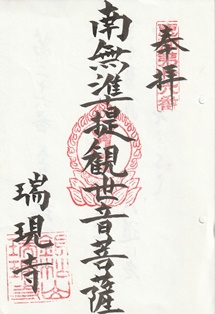 奉拝
南無準提観世音菩薩
瑞現寺